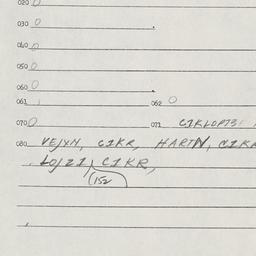 020 0
030 0
040 0
050 0
060 0
061 062 0
070 0 071 C1KLOP73
080 VEJXN, C1KR, HARTN, C1KR
LOJZI, C1KR,
(152